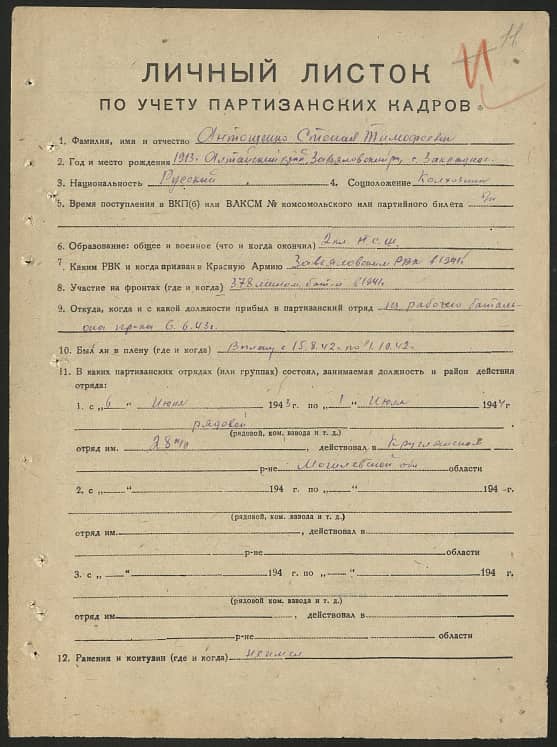 11
И
ЛИЧНЫЙ ЛИСТОК
ПО УЧЕТУ ПАРТИЗАНСКИХ КАДРОВ
1. Фамилия, имя и отчество Антощенко Степан Тимофеевич
2. Год и место рождения 1913г. Алтайский край, Завьяловский р-н, с.
3. Национальность Русский 4. Соцположение Колхозник
5. Время поступления в ВКП(б) или ВЛКСМ № комсомольского или партийного билета б/п
6. Образование: общее и военное (что и когда окончил) 2 кл. Н.С.Ш.
7. Каким РВК и когда призван в Красную Армию Завьяловским РВК в 1941г.
8. Участие на фронтах (где и когда) 378 бат-н в 1941г.
9. Откуда, когда и с какой должности прибыл в партизанский отряд из рабочего баталь-
она пр-ка 6.6.43г.
10. Был ли в плену (где и когда) В плену с 15.8.42г. по 1.10.42г.
11. В каких партизанских отрядах (или группах) состоял, занимаемая должность и район действия
отряда:
1. с „6“ Июня 1943г. по „1“ Июля 1944г
рядовой
(рядовой, ком. взвода и т. д.)
отряд им. 28й , действовал в Круглянском
р-не Могилевской обл области
2. с „ “ 194 г. по „ “ 194 г.
(рядовой, ком. взвода и т. д.)
отряд им. , действовал в
р-не области
3. с „ “ 194 г. по „ “ 194 г.
(рядовой, ком. взвода и т. д.)
отряд им. , действовал в
р-не области
12. Ранения и контузии (где и когда) не имел